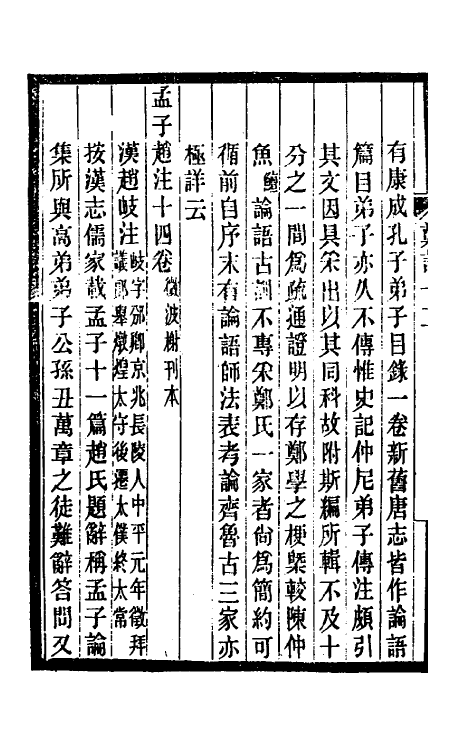 有康成孔子弟子目錄一卷新舊唐志皆作論語
篇目弟子亦久不傳惟史記仲尼弟子傳注頗引
其文因具采出以其同科故附斯編所輯不及十
分之一間爲疏通證明以存鄭學之梗槩較陳仲
魚鱣論語古訓不專采鄭氏一家者尙爲簡約可
循前自序末有論語師法表考論齊魯古三家亦
極詳云
孟子趙注十四卷微波榭刊本
漢趙岐注岐字邠卿京兆長陵人中平元年徵拜議郎舉燉煌太守後遷太僕終太常
按漢志儒家載孟子十一篇趙氏題辭稱孟子論
集所與高弟弟子公孫丑萬章之徒難辭答問又